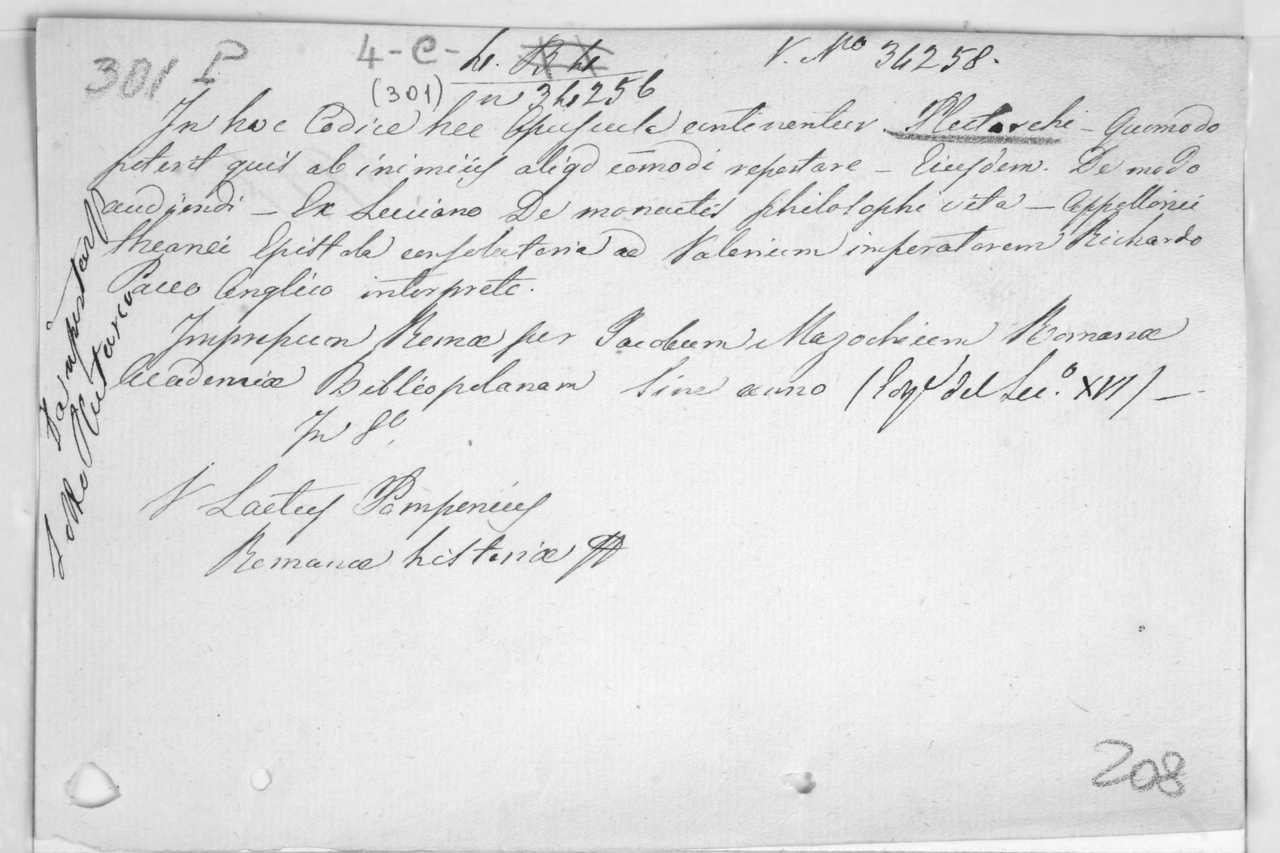 301 P
4-C-
(301)
n 34256
V. Nº 34258.
In hoc Codice hec Opuscula continentur Plutarchi - Quomodo
poterit quis ab inimicis aliqd cōmodi reportare - Eiusdem. De modo
audjendi - Ex Luciano De monactis philosophi vita - Appollonii
theanei Epistola consolatoria ad Valerium imperatorem Richardo
Paceo Anglico interprete.
Impressum Romæ per Jacobum Mazochium Romanæ
Academiæ Bibliopolanam Sine anno (del Sec.º XVI) -
In 8º,
V Laetus Pomponius
Romanæ historiæ
Da riportarsi
sotto Plutarco
208